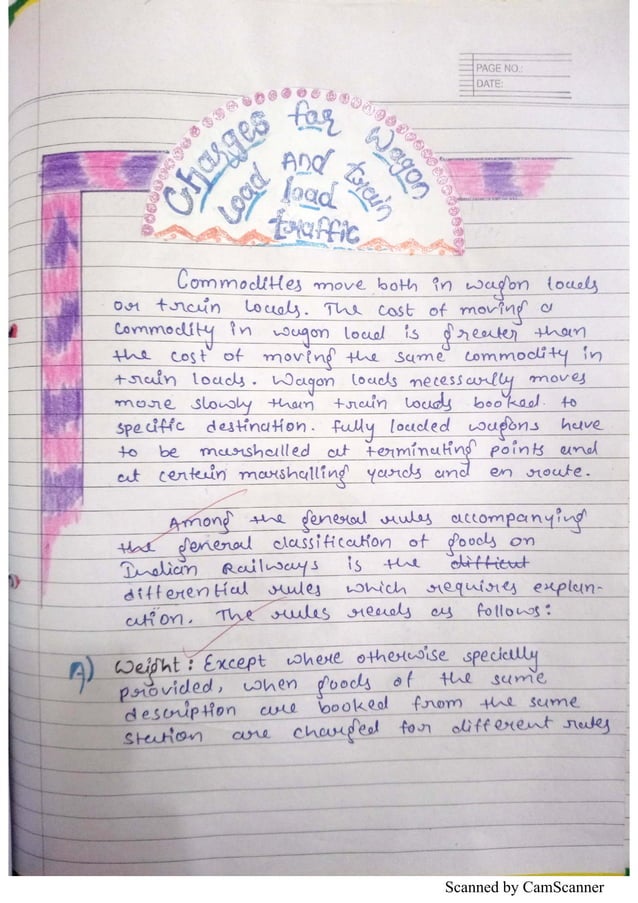 PAGE NO.:
DATE:
Charges for Wagon
load And train
load
traffic
Commodities move both in wagon loads
or train loads. The cost of moving a
commodity in wagon load is greater than
the cost of moving the same commodity in
train loads. Wagon loads necessarily moves
more slowly than train loads booked to
specific destination. fully loaded wagons have
to be marshalled at terminating points and
at certain marshalling yards and en route.
Among the general rules accompanying
the general classification of goods on
Indian Railways is the difficut
differential rules which requires explan-
ation. The rules reads as follows:
A) Weight: Except where otherwise specially
provided, when goods of the same
description are booked from the same
station are charged for different rates
Scanned by CamScanner